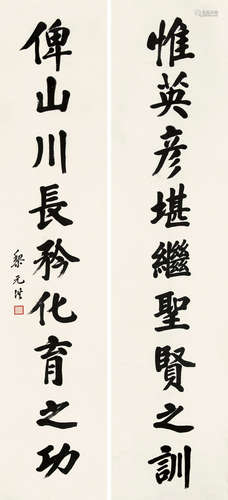 惟英彦堪繼聖賢之訓
俾山川長矜化育之功
黎元洪